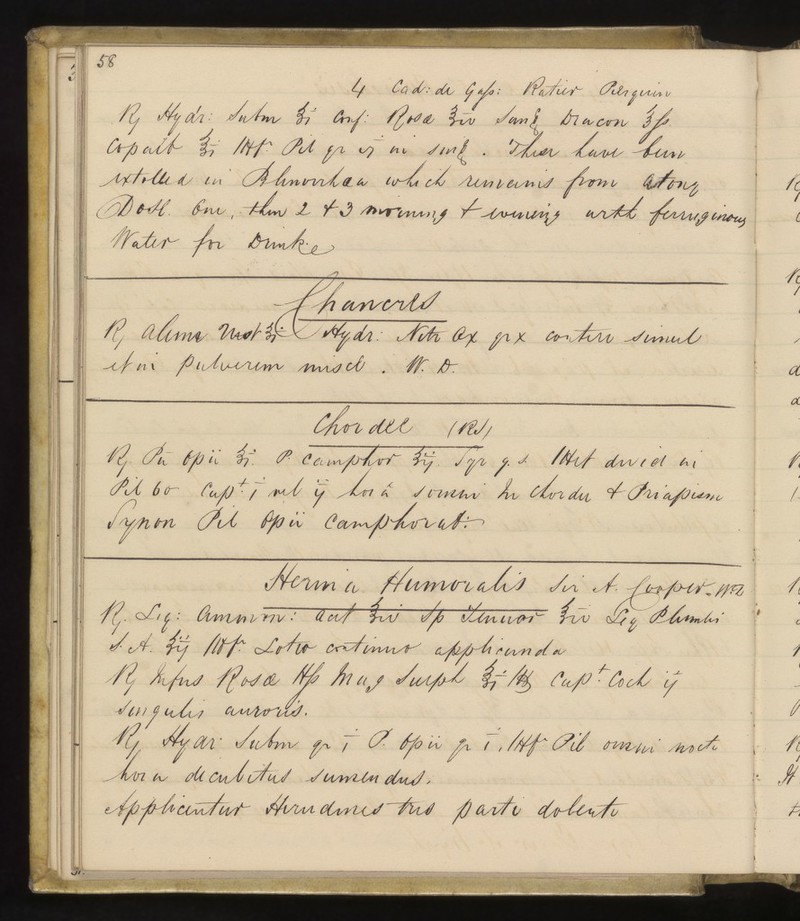 58
4 Cad: de Gass: Ratier
℞ Hydr: Subm ʒj Conf: Rosæ ʒiv Sang Dracon ʒfs
Copaib ʒj Mft Pil gr vj in sing. These have been
extolled in Blenorrhæa which remains from atony
Dose One, then 2 + 3 morning + evening with ferruginous
Water for Drinke
Chancres
℞ Alum Ust ʒj Hydr: Nitr Ox gr x contere simul
et in Pulverem misce. W. D.
Chordee
℞ Pu Opii ʒj. P Camphor ʒij Syr q.s. Mft divid in
Pil 60 Capt. j vel ij hora somni In Chordee + Priapism
Synon Pil Opii Camphorat:
Hernia Humoralis Sir A. Cooper
℞. Liq: Ammon: Acet ʒiv Sp Tenuor ʒiv Liq Plumbi
S. A. ʒij Mft. Lotio continuo applicanda
℞ Infus Rosæ ℔fs Mag Sulph ʒj M Capt. Coch ij
singulis auroris.
℞ Hydr: Subm gr j P. Opii gr j, Mft Pil omni nocte
hora decubitus sumendus.
Applicentur Hirudines tres parte dolente